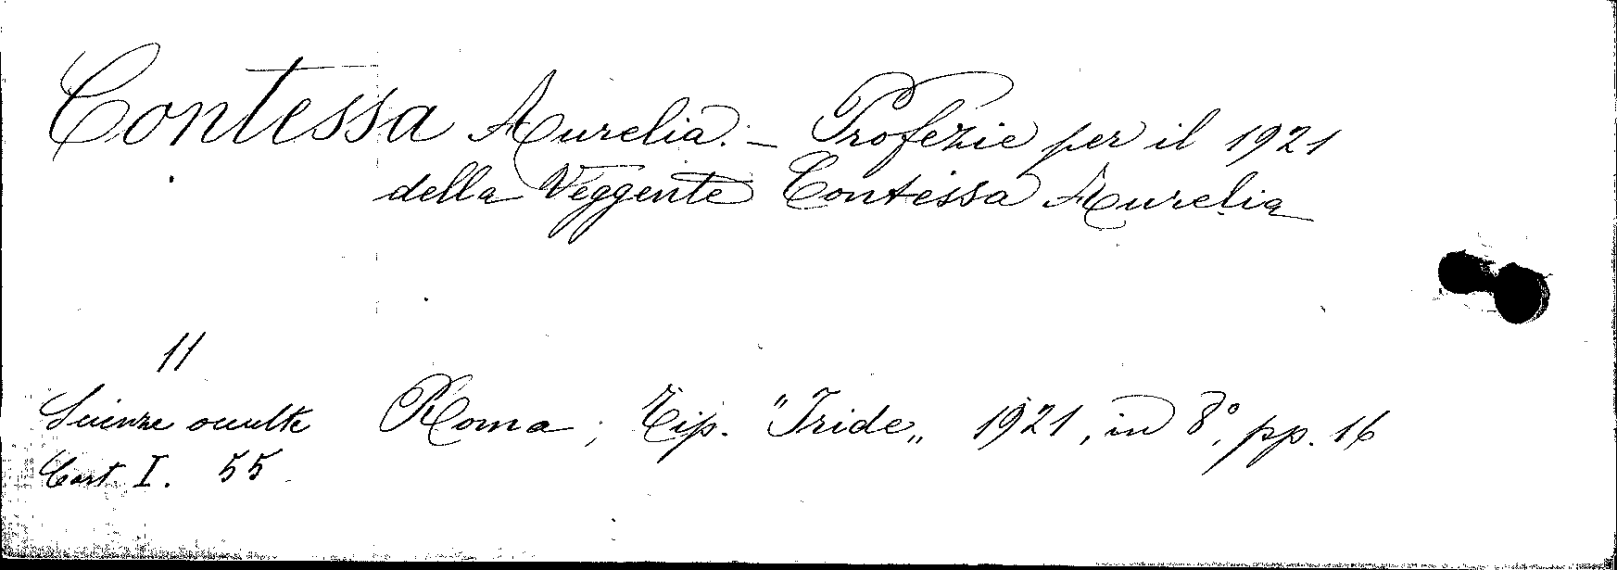 Contessa Aurelia. – Profezie per il 1921
della Veggente Contessa Aurelia
11
Scienze occulte Roma, Tip. "Iride„ 1921, in 8°, pp. 16
Cart. I. 55